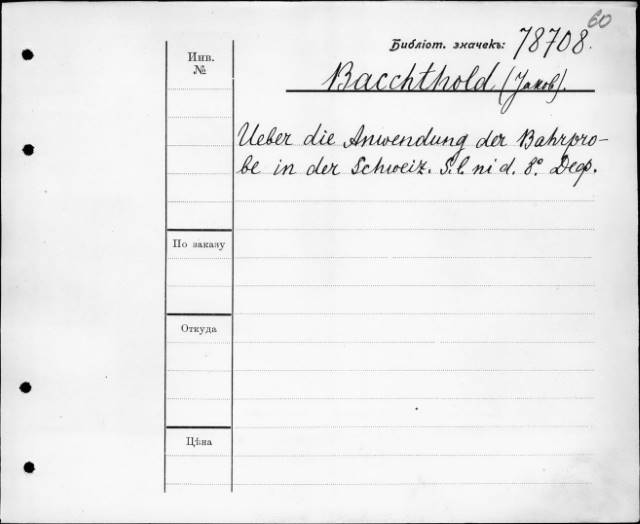 60
Библіот. значекъ: 78708.
Инв.
№
Bacchthold (Jakob).
Ueber die Anwendung der Bahrpro-
be in der Schweiz. S. l. ni d. 8º.
По заказу
Откуда
Цѣна